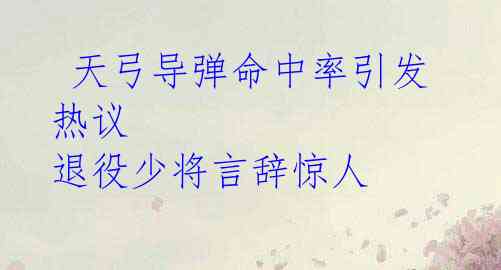 天弓导弹命中率引发
热议
退役少将言辞惊人